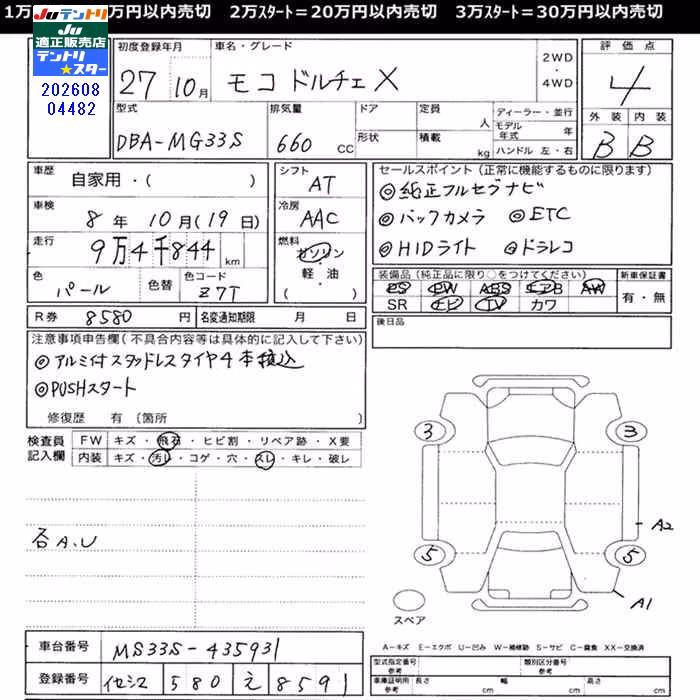 1万 万円以内売切 2万スタート＝20万円以内売切 3万スタート＝30万円以内売切
Juテントリ
Ju
適正販売店
テントリ
★スター
202608
04482
初度登録年月 車名・グレード 2WD・4WD 評価点
27 10月 モコ ドルチェ X 4
型式 排気量 ドア 定員 人 ディーラー・並行 外装 内装
DBA-MG33S 660 CC 形状 積載 kg モデル年式 年 ハンドル 左・右 B B
車歴 自家用・( ) シフト AT セールスポイント (正常に機能するものに限ります)
◎純正フルセグナビ
車検 8年 10月(19日) 冷房 AAC ◎バックカメラ ◎ETC
走行 9万4千844 km 燃料 ガソリン・軽・油 ( ) ◎HIDライト ◎ドラレコ
色 パール 色替 色コード Z7T
装備品 (純正品に限り○をつけてください) 新車保証書
PS PW ABS エアB AW 有・無
SR ナビ TV カワ
R券 8580 円 名変通知期限 月 日 後日品
注意事項申告欄 (不具合内容等は具体的に記入して下さい)
◎アルミ付スタッドレスタイヤ4本積込
◎PUSHスタート
修復歴 有 〔箇所 〕
検査員記入欄 FW キズ・飛石・ヒビ割・リペア跡・X要
内装 キズ・汚レ・コゲ・穴・スレ・キレ・破レ
3 3
各A.U
A2
5 5
A1
スペア
車台番号 MS33S-435931
登録番号 580 え 8591
A－キズ E－エクボ U－凹み W－補修跡 S－サビ C－腐食 XX－交換済
型式指定番号 参考 類別区分番号 参考
車庫証明用 参考 長さ cm 幅 cm 高さ cm